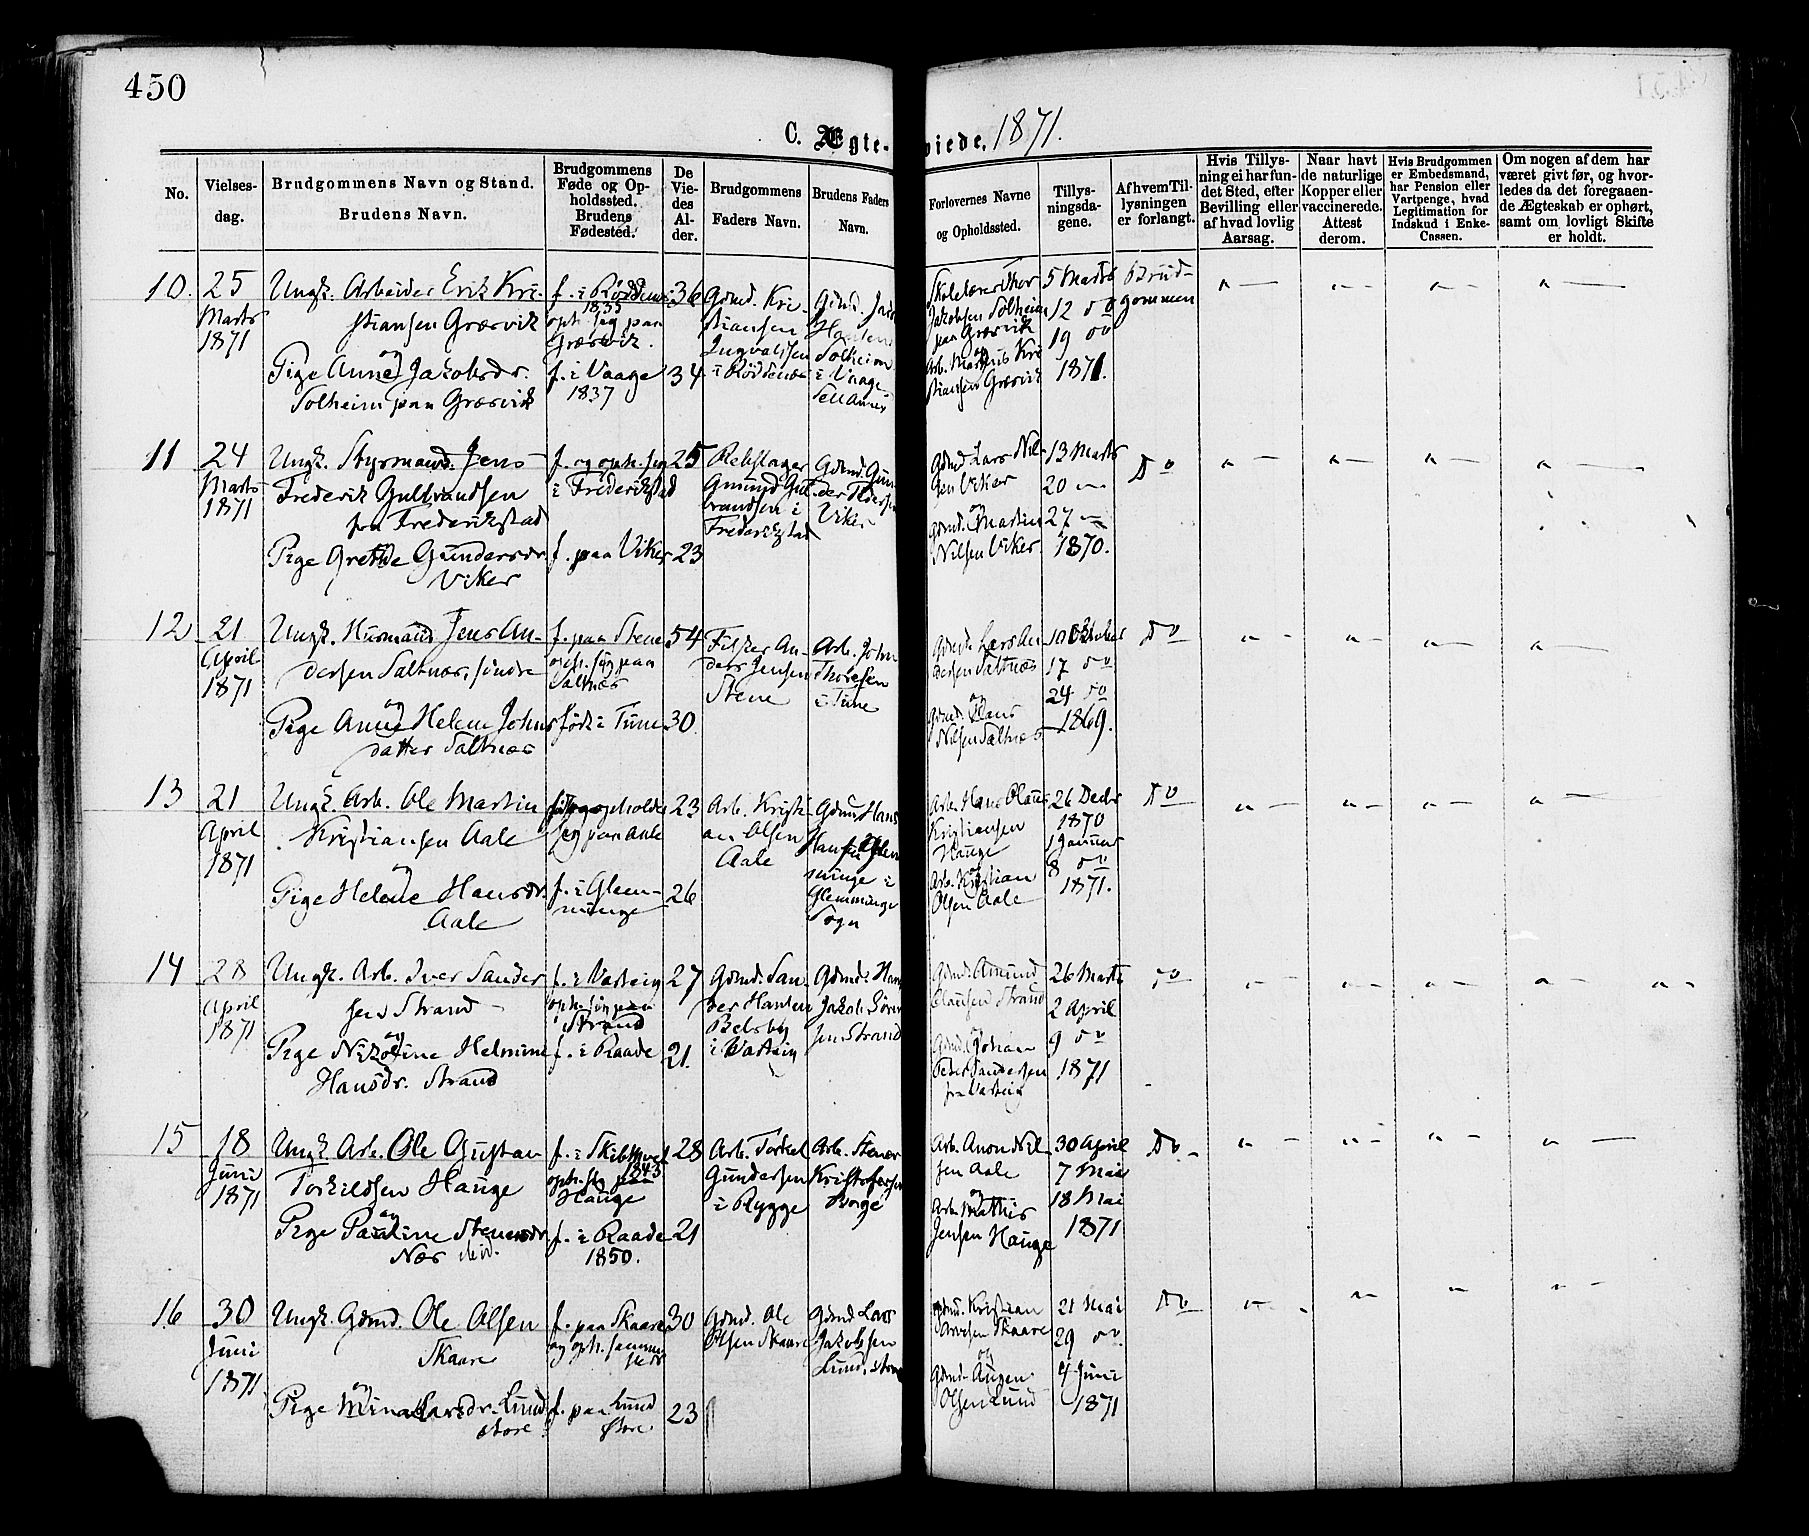 450
C. Ægte-viede, 1871.
No.
Vielses-
dag.
Brudgommens Navn og Stand.
Brudens Navn.
Brudgommens
Føde og Op-
holdssted.
Brudens
Fødested.
De
Vie-
des
Al-
der.
Brudgommens
Faders Navn.
Brudens Faders
Navn.
Forlovernes Navne
og Opholdssted.
Tillys-
ningsda-
gene.
Af hvem Til-
lysningen
er forlangt.
Hvis Tillys-
ning ei har fun-
det Sted, efter
Bevilling eller
af hvad lovlig
Aarsag.
Naar havt
de naturlige
Kopper eller
vaccinerede.
Attest
derom.
Hvis Brudgommen
er Embedsmand,
har Pension eller
Vartpenge, hvad
Legitimation for
Indskud i Enke-
Cassen.
Om nogen af dem har
været givt før, og hvor-
ledes da det foregaaen-
de Ægteskab er ophørt,
samt om lovligt Skifte
er holdt.
10.
25
Marts
1871
Ungk. Arbeider Erik Kri-
stiansen Græsvik
og
Pige Anne Jakobsdr.
Solheim paa Græsvik
f. i Røddenæs
1835
oph. sig paa
Græsvik.
f. i Vaage
1837
36
34
Gdmd. Kri-
stiansen
Ingvaldsen
i Røddenæs
Gdmd.
Solheim
i Vaage
Skolelærer Thor
Jakobsen Solheim
paa Græsvik
og
Arb. Martinus Kri
stiansen Græsvik
5 Marts
12 do
19 do
1871.
Brud-
gommen
11
24
Marts
1871
Ungk. Styrmand Jens
Frederik Gulbrandsen
fra Frederikstad
Pige Grethe Gundersdr
Viker
f. og oph. sig
i Frederikstad
f. paa Viker
25
23
Rebslager
Gmund Gul-
brandsen i
Frederikstad
Gdmd. Gun
der Pedersen
Viker
Gdmd. Lars Nil-
sen Viker
og
Gdmd. Martin
Nilsen Viker
13 Marts
20 —
27 —
1870.
Do
12
21
April
1871
Ungk. Husmand Jens An-
dersen Saltnæs, søndre
og
Pige Anne Helene Johns
datter Saltnæs
f. paa Stene
oph. sig paa
Saltnæs
født i Tune
54
30
Filster An-
ders Jensen
Stene
Arb. John
Thoresen
i Tune
Gdmd. Lars An
dersen Saltnæs
og
Gdmd. Hans
Nilsen Saltnæs
10 Oktober
17 do
24 do
1869.
Do
13
21
April
1871
Ungk. Arb. Ole Martin
Kristiansen Aale
og
Pige Helene Hansdr.
Aale
født og opholder
sig paa Aale
f. i Gleem-
minge
23
26
Arb. Kristi-
an Olsen
Aale
Gdmd. Hans
Hansen
minge i
Glemminge
Sogn
Arb. Hans Olaus
Kristiansen
Hauge
og
Arb. Kristian
Olsen Aale
26 Decbr
1870
1 Januar
8 do
1871.
Do
14
28
April
1871
Ungk. Arb. Iver Sander
sen Strand
og
Pige Nikoline Helmine
Hansdr. Strand
f. i Varteig
oph. sig paa
Strand
f. i Raade
27
21.
Gdmd. San-
der Hansen
Belsby
i Varteig
Gdmd. Hans
Jakob Søren
sen Strand
Gdmd. Amund
Clausen Strand
og
Gdmd. Johan
Peter Sandersen
fra Varteig
26 Marts
2 April
9 do
1871
Do
15
18
Juni
1871
Ungk. Arb. Ole Gustav
Torkildsen Hauge
og
Pige Pauline Stenersdr
Nær
f. i Skibtvet
1843
oph. sig paa
Hauge
f. i Raade
1850.
28
21
Arb. Torkel
Gundersen
i Rygge
Arb. Stener
Kristofersen
Borge
Arb. Anon Nil
sen Aale
og
Arb. Mathis
Jensen Hauge
30 April
7 Mai
18 Mai
1871
Do.
16
30
Juni
1871
Ungk. Gdmd. Ole Olsen
Skaare
og
Pige Mina Larsdr. Lund
store
f. paa Skaare
og oph. samme
sted
f. paa Lund
store
30
23
Gdmd. Ole
Olsen Skaare
Gdmd Lars
Jakobsen
Lund, store
Gdmd. Kristian
Arvesen Skaare
og
Gdmd. Augen
Olsen Lund
21 Mai
29 do.
4 Juni
1871
Do